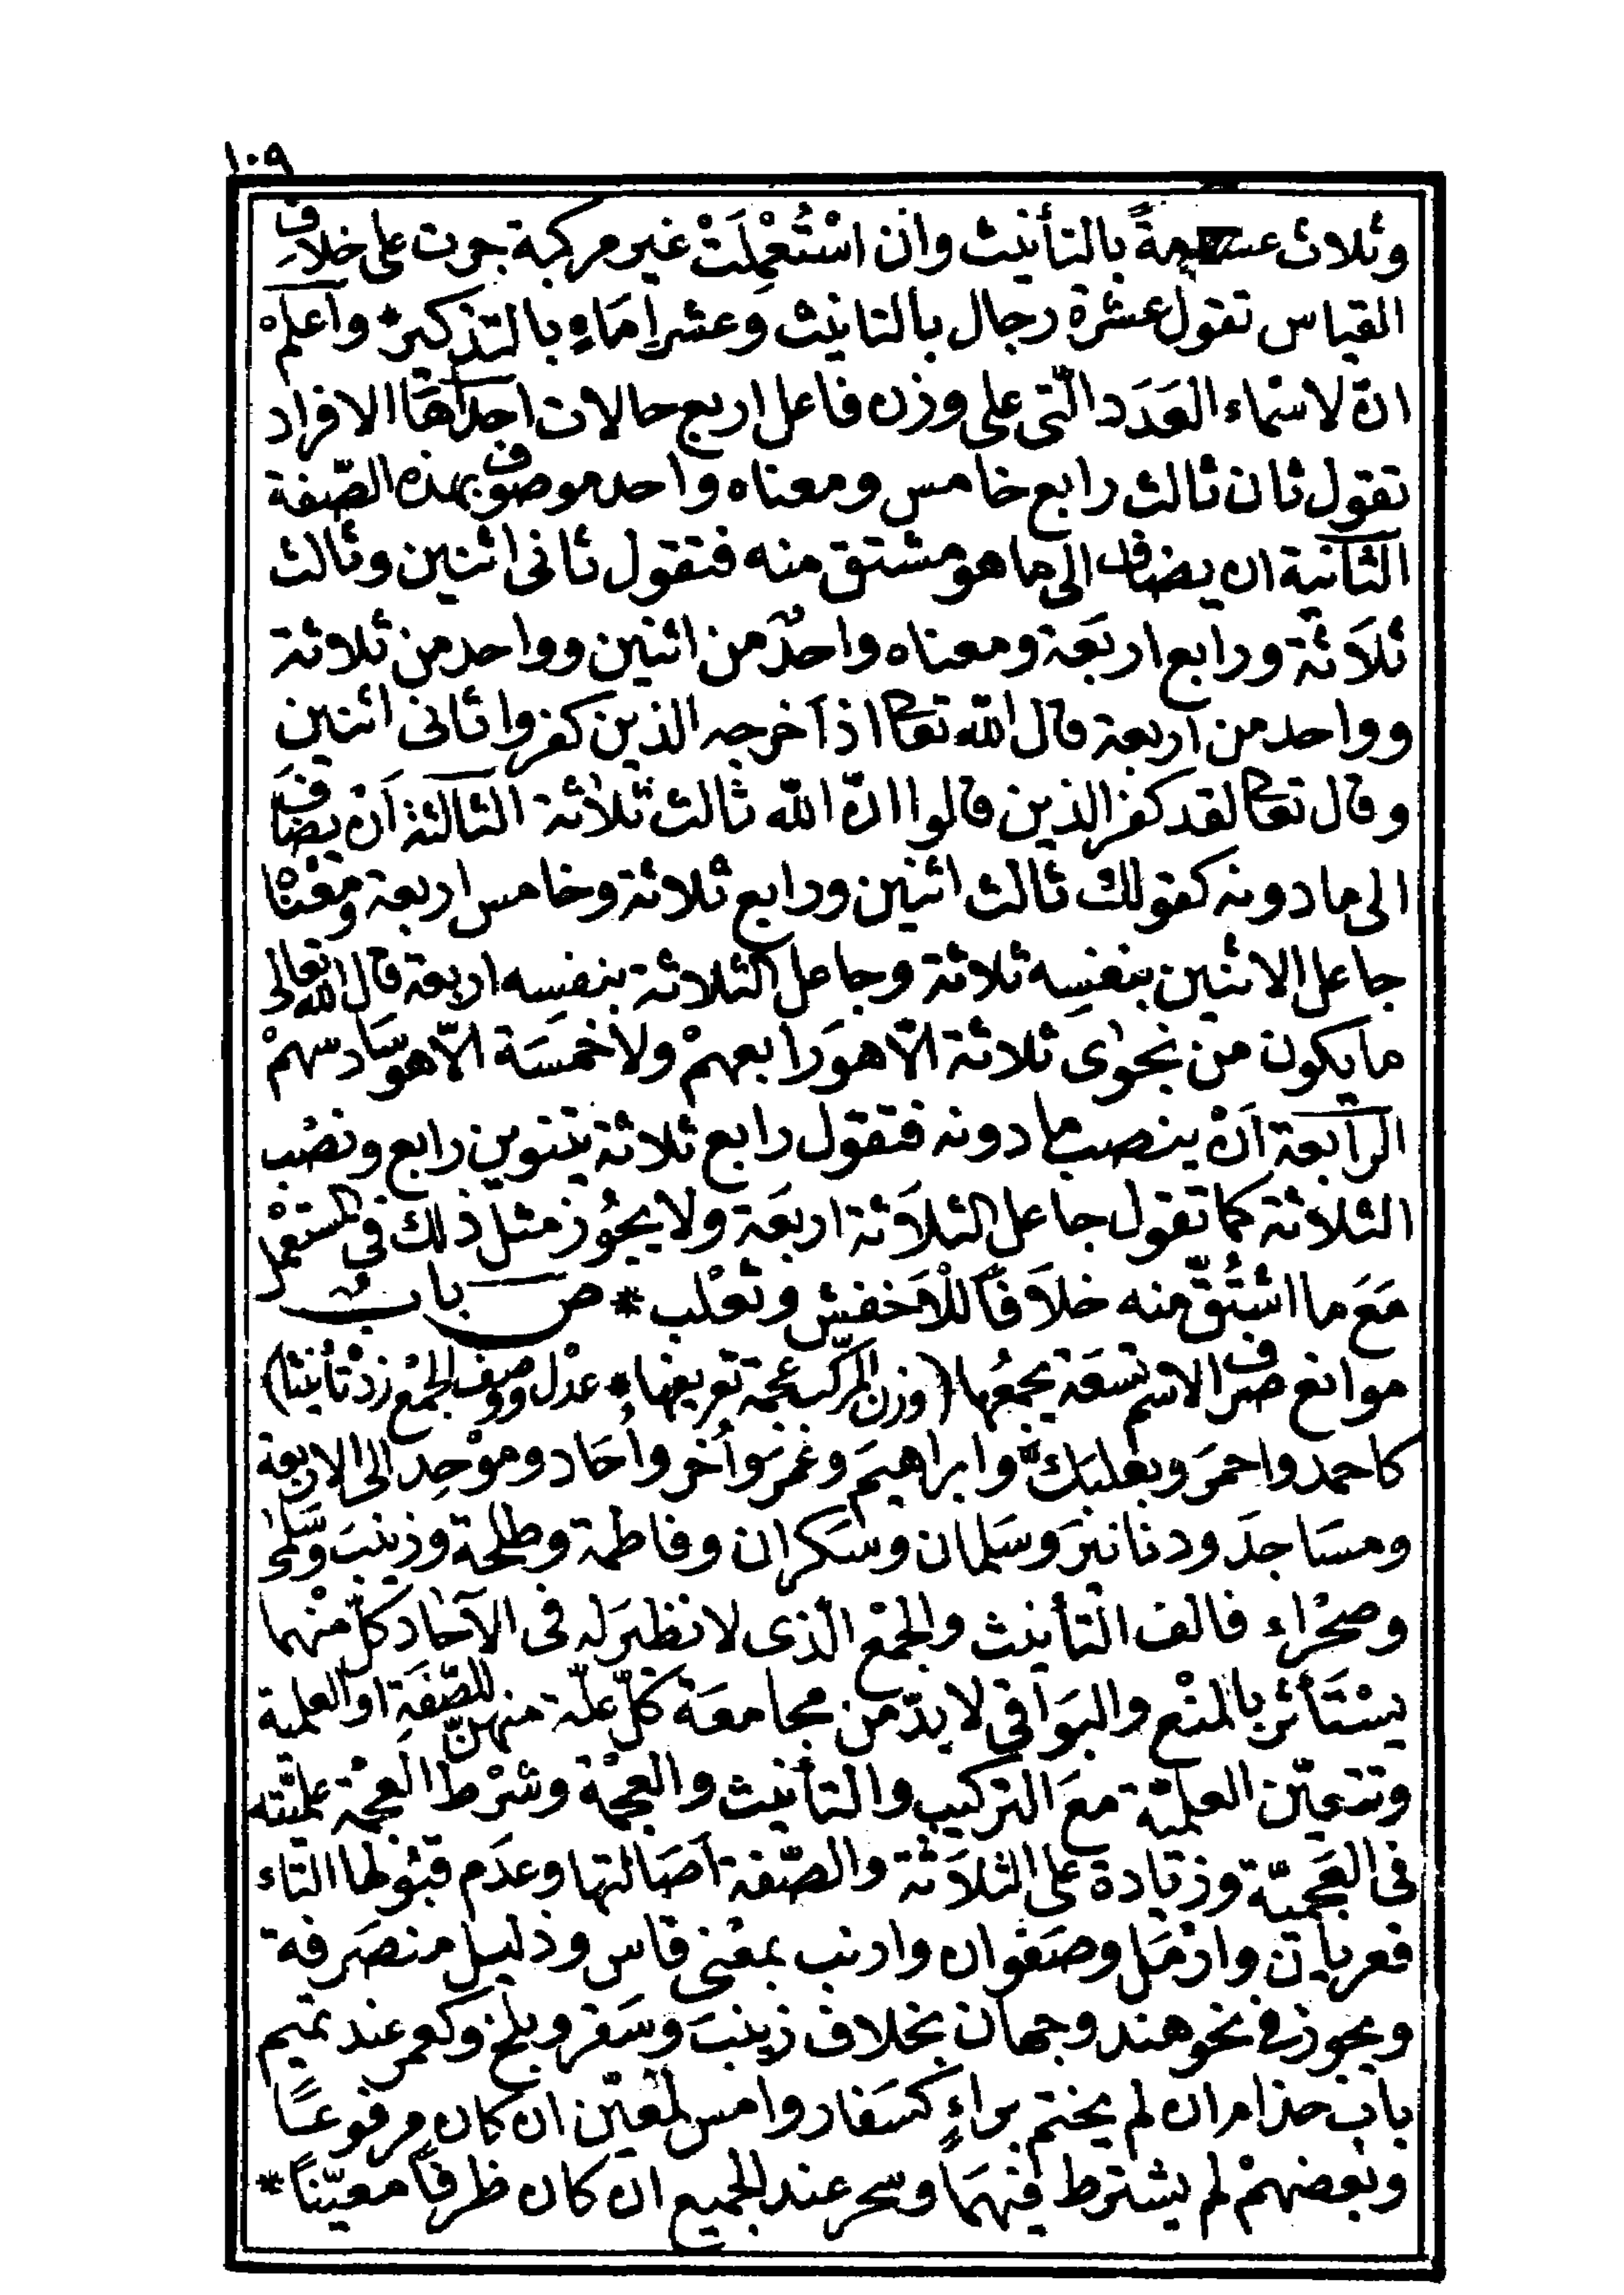 ١٠٩
وثلاث عشرة أمةً بالتأنيث وان اسْتُعْمِلَتْ غير مركبة جرت على خلاف
القياس تقول عشرة رجال بالتانيث وعشر إمَاءٍ بالتذكير * واعلم
انّ لاسماء العَدَد الّتى على وزن فاعل اربع حالات احداها الافراد
تقول ثان ثالث رابع خامس ومعناه واحد موصوف بهذه الصّفة
الثانية ان يضاف الى ما هو مشتق منه فتقول ثانى اثنين وثالث
ثلَاثة ورابع اربَعة ومعناه واحدٌ من اثنين وواحد من ثلاثة
وواحد من اربعة قال الله تعالى اذ أخرجه الذين كفروا ثانى اثنين
وقال تعالى لقد كفر الذين قالوا انّ الله ثالث ثلاثة الثالثة أن يضَاف
الى ما دونه كقولك ثالث اثنين ورابع ثلاثة وخامس اربعة ومعْناه
جاعل الاثنين بنفسِه ثلاثة وجاعل الثلاثة بنفسِه اربعة قال الله تعالى
ما يكون من نجوٰى ثلاثة الّا هوَ رابعهمْ ولا خمسَة الّا هو سَادسهمْ
الرابعة أنْ ينصب ما دونه فتقول رابع ثلاثة بتنوين رابع ونصْب
الثلاثة كما تقول جاعل الثلاَثة اربعَة ولا يجُوز مثل ذلك فى المستعْمل
مَعَ ما اشتُقّ منه خلاَفًا للأخفش وثعْلب * ص باب
موانع صرف الاسم تسعَة يجمعُها (وزن المركّب عجمة تعريفها * عدْل ووصف الجمْع زدْ تأنيثا)
كاحمد واحمرَ وبعْلبَكّ وابراهيمَ وعُمرَ وأُخر وأُحَاد وموْحد الى الاربعة
ومسَاجدَ ودنانيرَ وسَلمان وسَكران وفاطمة وطلحة وزينبَ وسَلمٰى
وصحْراء فالف التأنيث والجمْع الّذى لا نظيرَ له فى الآحاد كلّ منْهما
يسْتَأثر بالمنْع والبوَاقى لا بدّ من مجامعَة كلّ علّة منهنّ للصّفَةِ او العلمية
وتتعيّن العلميّة معَ التركيب والتأنيث والعجْمة وشرْط العجْمة علميّته
فى العَجميّة وزيادة على الثلَاثة والصّفة أصَالتها وعدَم قبُولها التاء
فعريان وارْمَل وصَفوان وارنب بمعْنى قاس وذليل منصَرفة
ويجوز فى نحو هند وجهان بخلاف زينبَ وسَقر وبلخ وكعمر عند تميم
باب حذام ان لم يختم براءٍ كسَفار وامس لمعيّن ان كان مرفوعًا
وبعضهمْ لم يشترط فيهمَا وسحر عند الجميع ان كان ظرفًا معيّنًا *